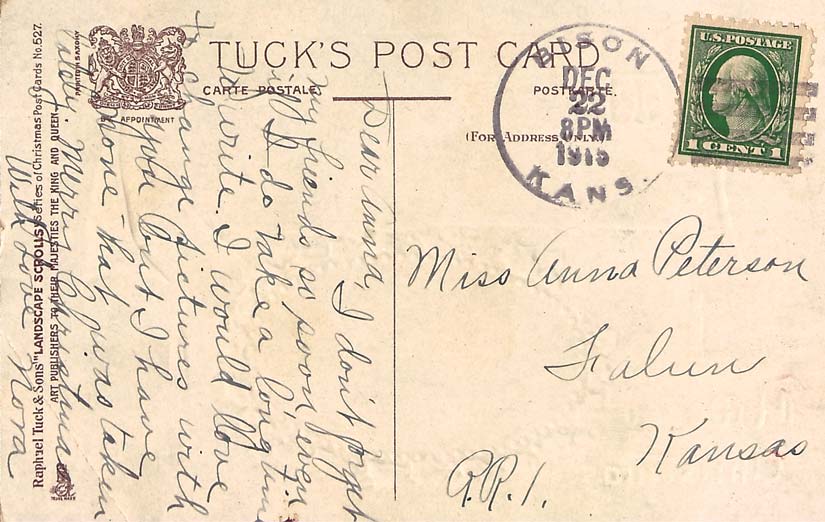 TUCK'S POST CARD
CARTE POSTALE.
POSTKARTE.
(FOR ADDRESS ONLY.)
BY APPOINTMENT
PRINTED IN SAXONY
Raphael Tuck & Sons' "LANDSCAPE SCROLLS" Series of Christmas Post Cards No. 527.
ART PUBLISHERS TO THEIR MAJESTIES THE KING AND QUEEN
TRADE MARK
BISON
DEC
22
8PM
1915
KANS.
U.S. POSTAGE
1 CENT 1
Dear Anna, I don't forget
my friends so soon even
if I do take a long time
to write. I would love
to change pictures with
you but I have
none that was taken
Merry Christmas
With love Nora
Miss Anna Peterson
Falun
Kansas
R.R.1.